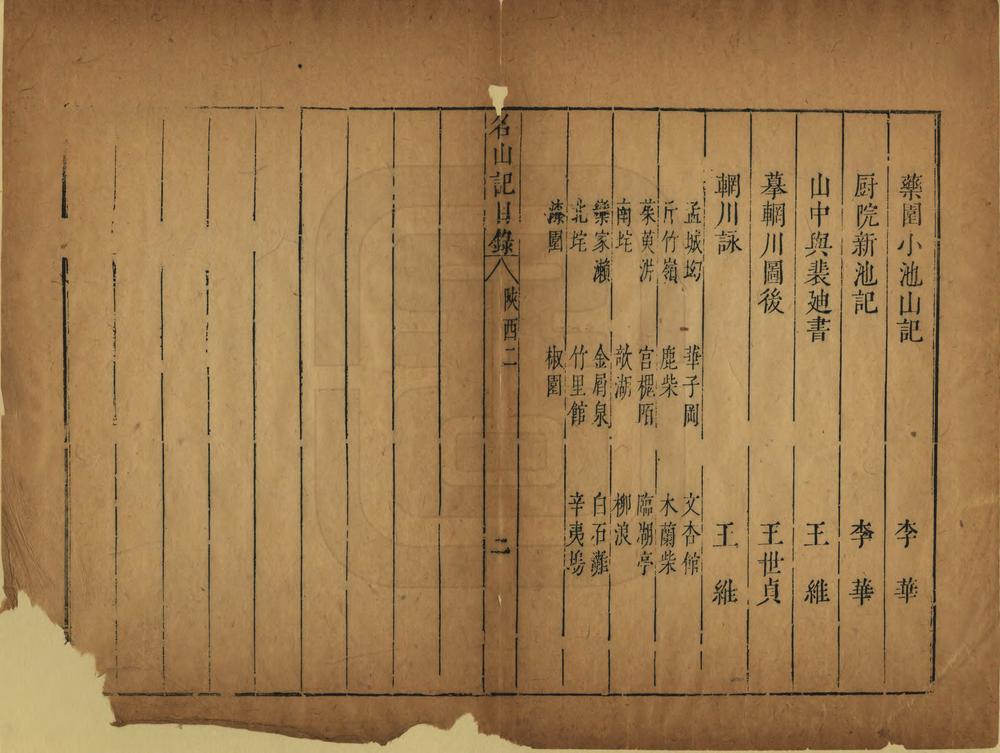 藥園小池山記 李華
廚院新池記 李華
山中與裴迪書 王維
摹輞川圖後 王世貞
輞川詠 王維
孟城坳 華子岡 文杏館
斤竹嶺 鹿柴 木蘭柴
茱萸沜 宮槐陌 臨湖亭
南垞 欹湖 柳浪
欒家瀨 金屑泉 白石灘
北垞 竹里館 辛夷塢
漆園 椒園
名山記目錄 陝西二 二